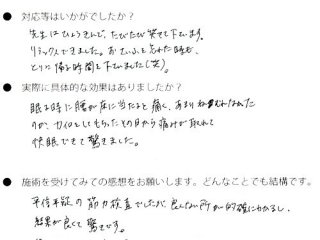 ● 対応等はいかがでしたか？
先生はひょうきんで、たびたび笑せて下さいます。
リラックスできました。おさいふを忘れた時も、
とりに帰る時間を下さいました（笑）。
● 実際に具体的な効果はありましたか？
眠る時に腰が床に当たると痛く、あまりねむれなかった
のが、カイロをしてもらったその日から痛みが取れて
快眠できて驚きました。
● 施術を受けてみての感想をお願いします。どんなことでも結構です。
半信半疑の筋力検査でしたが、良くない所が的確にわかるし、
結果が良くて驚きです。